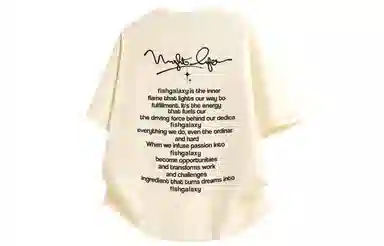 fishgalaxy is the inner
flame that lights our way bo
fulfillment. It's the energy
that fuels our
the driving force behind our dedica
fishgalaxy
everything we do, even the ordinar
and hard
When we infuse passion into
fishgalaxy
become opportunities
and transforms work
and challenges
ingredient that turns dreams into
fishgalaxy